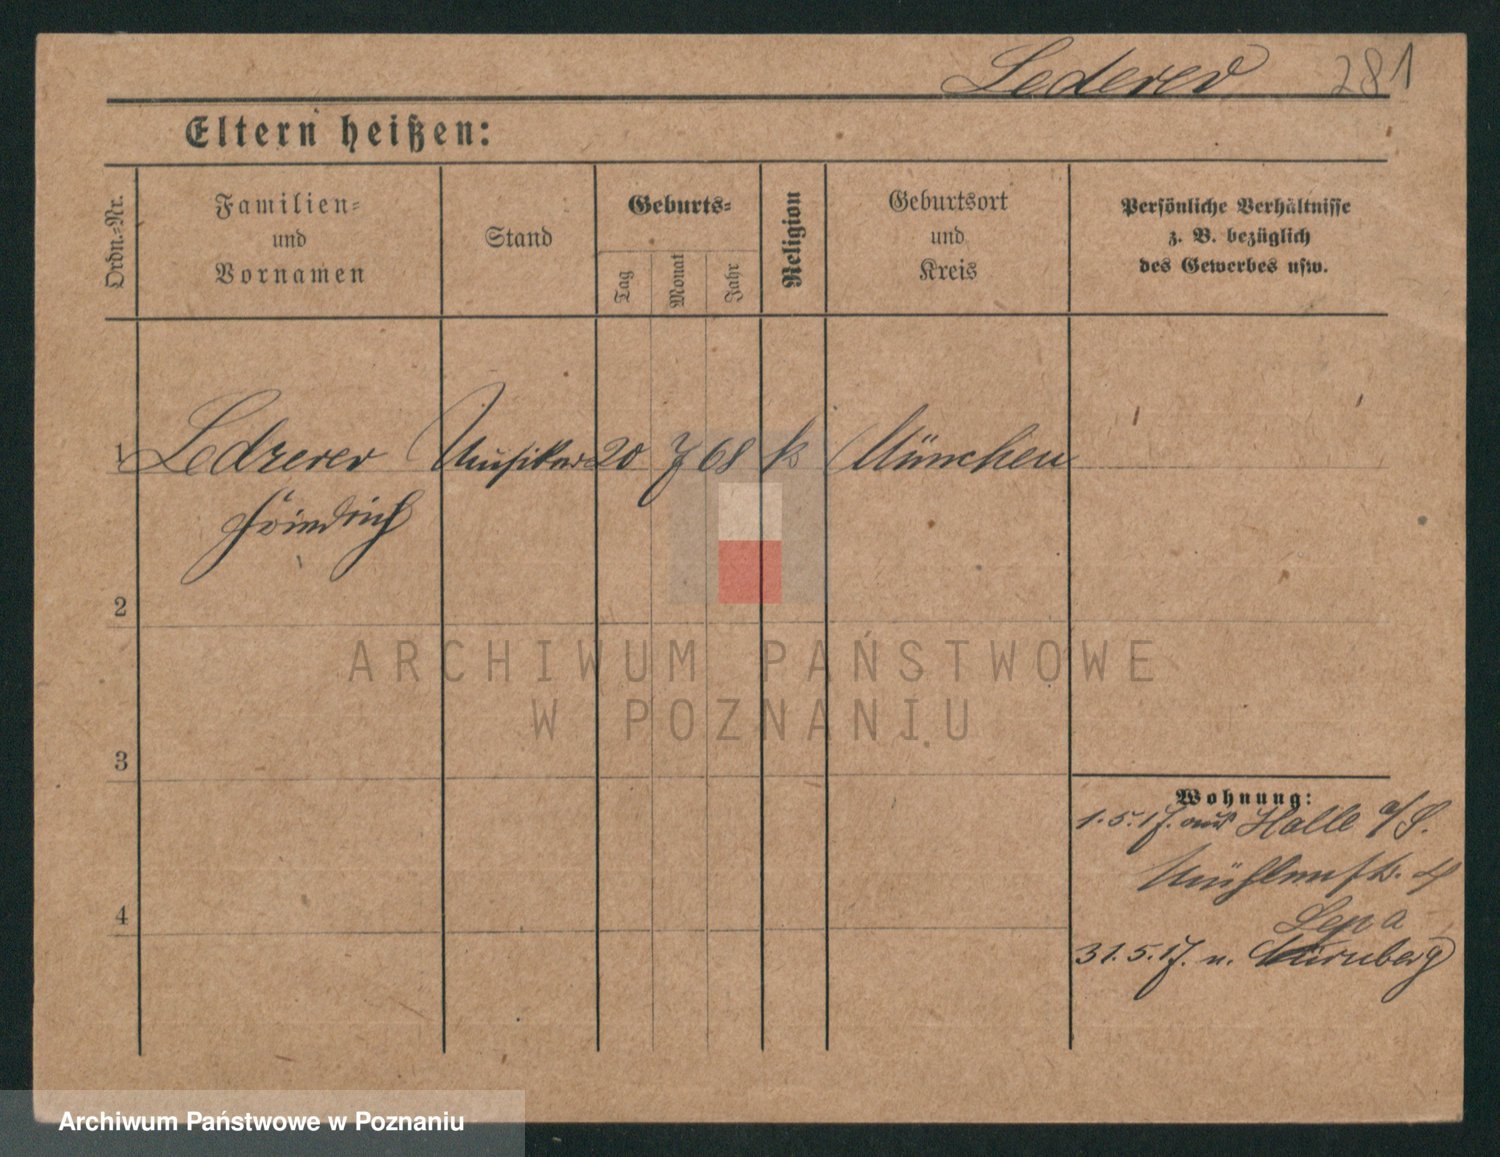 Lederer 281
Eltern heißen:
Ordn.-Nr.
Familien-
und
Vornamen
Stand
Geburts-
Tag
Monat
Jahr
Religion
Geburtsort
und
Kreis
Persönliche Verhältnisse
z. B. bezüglich
des Gewerbes usw.
1 Lederer Musiker 20 7 68 k München
Friedrich
2
ARCHIWUM PAŃSTWOWE
W POZNANIU
3
Wohnung:
1.5.17. aus Halle a/S.
Mühlenstr. 4
4
31.5.17. n. Nürnberg
Archiwum Państwowe w Poznaniu